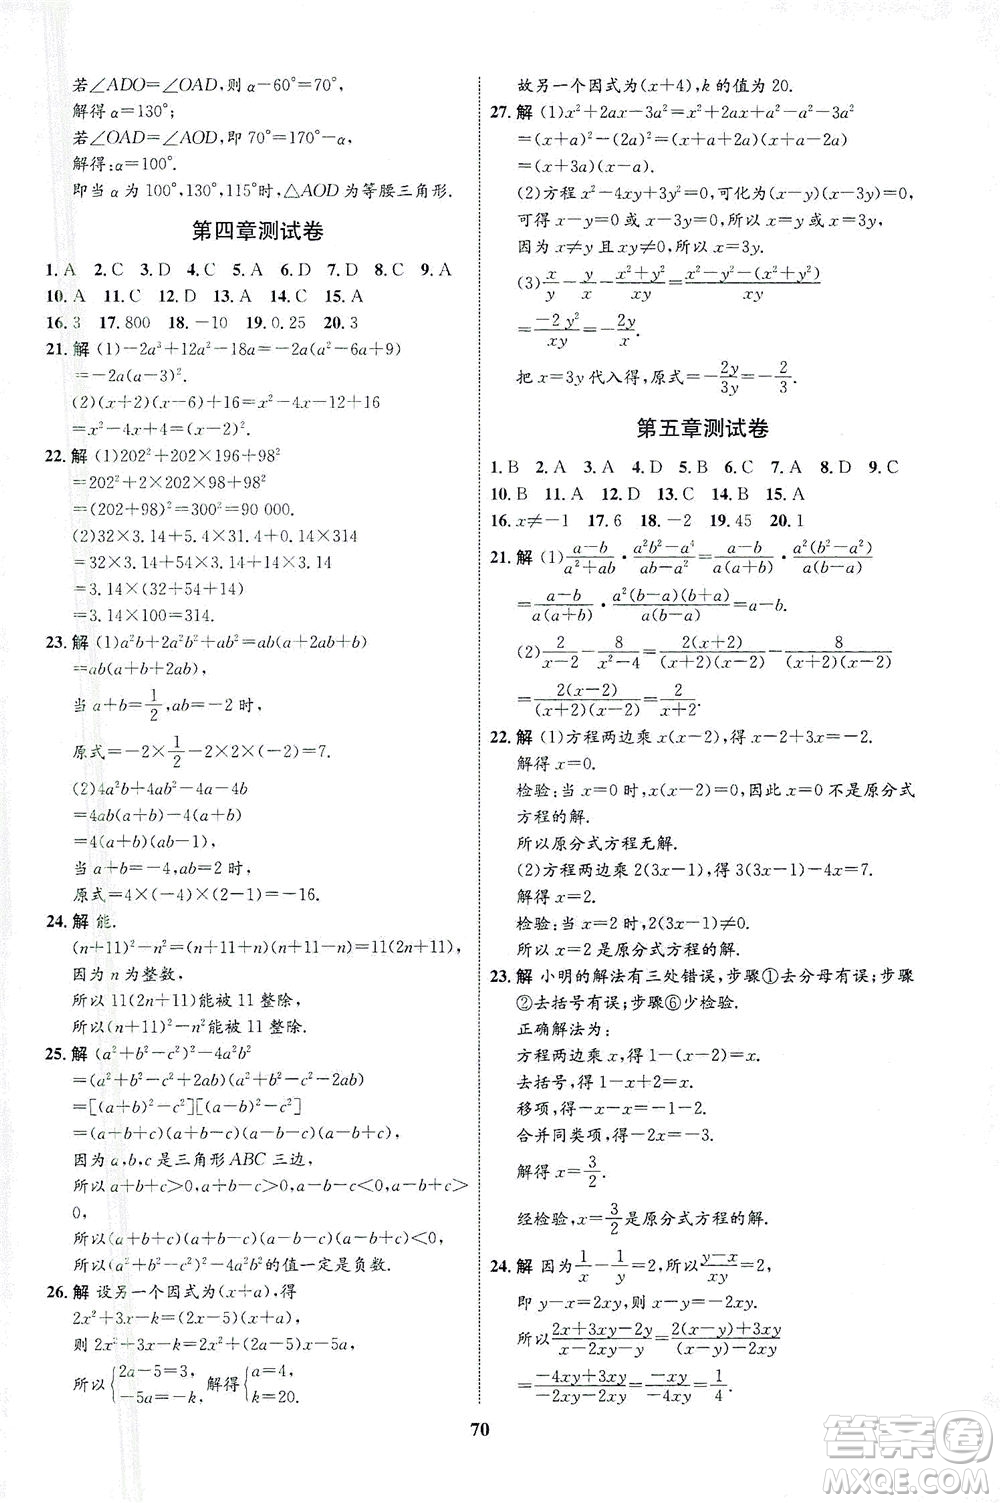 若∠ADO=∠OAD,则 α-60°=70°,
解得 α=130°;
若∠OAD=∠AOD,即 70°=170°-α,
解得:α=100°.
即当 α 为 100°,130°,115°时,△AOD 为等腰三角形.
第四章测试卷
1. A 2. C 3. D 4. C 5. A 6. D 7. C 8. C 9. A
10. A 11. C 12. D 13. A 14. C 15. A
16. 3 17. 800 18. -10 19. 0.25 20. 3
21. 解 (1)-2a³+12a²-18a=-2a(a²-6a+9)
=-2a(a-3)².
(2)(x+2)(x-6)+16=x²-4x-12+16
=x²-4x+4=(x-2)².
22. 解 (1)202²+202×196+98²
=202²+2×202×98+98²
=(202+98)²=300²=90 000.
(2)32×3.14+5.4×31.4+0.14×314
=32×3.14+54×3.14+14×3.14
=3.14×(32+54+14)
=3.14×100=314.
23. 解 (1)a²b+2a²b²+ab²=ab(a+2ab+b)
=ab(a+b+2ab),
当 a+b=1/2,ab=-2 时,
原式=-2×1/2×(-2-2)=7.
(2)4a²b+4ab²-4a-4b
=4ab(a+b)-4(a+b)
=4(a+b)(ab-1).
当 a+b=-4,ab=2 时,
原式=4×(-4)×(2-1)=-16.
24. 解 能.
(n+11)²-n²=(n+11+n)(n+11-n)=11(2n+11).
因为 n 为整数,
所以 11(2n+11)能被 11 整除,
所以(n+11)²-n² 能被 11 整除.
25. 解 (a²+b²-c²)²-4a²b²
=(a²+b²-c²+2ab)(a²+b²-c²-2ab)
=[(a+b)²-c²][(a-b)²-c²]
=(a+b+c)(a+b-c)(a-b+c)(a-b-c),
因为 a,b,c 是三角形 ABC 三边,
所以 a+b+c>0,a+b-c>0,a-b+c>0,a-b-c<
0,
所以(a+b+c)(a+b-c)(a-b+c)(a-b-c)<0,
所以(a²+b²-c²)²-4a²b² 的值一定是负数.
26. 解 设另一个因式为(x+a),得
2x²+3x-k=(2x-5)(x+a)
则 2x²+3x-k=2x²+(2a-5)x-5a
所以{2a-5=3, -5a=-k, 解得{a=4, k=20.
故另一个因式为(x+4),k 的值为 20.
27. 解 (1)x²+2ax-3a²=x²+2ax+a²-a²-3a²
=(x+a)²-4a²=(x+a)²-(2a)²
=(x+3a)(x-a).
(2)方程 x²-4xy+3y²=0,可化为(x-y)(x-3y)=0,
可得 x-y=0 或 x-3y=0,所以 x=y 或 x=3y.
因为 x≠y 且 xy≠0,所以 x=3y.
(3)x/y-y/x-(x²+y²)/xy=(x²-y²-x²-y²)/xy
=-2y²/xy=-2y/x.
把 x=3y 代入得,原式=-2y/3y=-2/3.
第五章测试卷
1. B 2. A 3. A 4. A 5. D 6. C 7. A 8. C 9. C
10. B 11. A 12. D 13. C 14. B 15. A
16. x≠-1 17. 6 18. -2 19. 45 20. 1
21. 解 (1)(a-b)/(a²+ab)·(a²b²-a⁴)/(ab-a²)=(a-b)/(a(a+b))·(a²(b²-a²))/(a(b-a))
=(a-b)/(a(a+b))·(a²(b-a)(b+a))/(a(b-a))=a-b.
(2)2/(x-2)-8/(x²-4)=2(x+2)/((x+2)(x-2))-8/((x+2)(x-2))
=2(x-2)/((x+2)(x-2))=2/(x+2).
22. 解 (1)方程两边乘 x(x-2),得 x-2+3x=-2.
解得 x=0.
检验:当 x=0 时,x(x-2)=0,因此 x=0 不是原分式
方程的解.
所以原分式方程无解.
(2)方程两边乘 2(3x-1),得 3(3x-1)-2=7.
解得 x=2.
检验:当 x=2 时,2(3x-1)≠0.
所以 x=2 是原分式方程的解.
23. 解 小明的解法有三处错误,步骤①去分母有误;步骤
②去括号有误;步骤⑥少检验.
正确解法为:
方程两边乘 x,得 1-(x-2)=x.
去括号,得 1-x+2=x.
移项,得-x-x=-1-2.
合并同类项,得-2x=-3.
解得 x=3/2.
经检验,x=3/2 是原分式方程的解.
24. 解 因为 1/x-1/y=2,所以 (y-x)/xy=2,
即 y-x=2xy,则 x-y=-2xy,
所以 (2x+3xy-2y)/(x-2xy-y)=(2(x-y)+3xy)/(x-y-2xy)=
(-4xy+3xy)/(-2xy-2xy)=-xy/-4xy=1/4.
70
答案圈
MXQE.COM